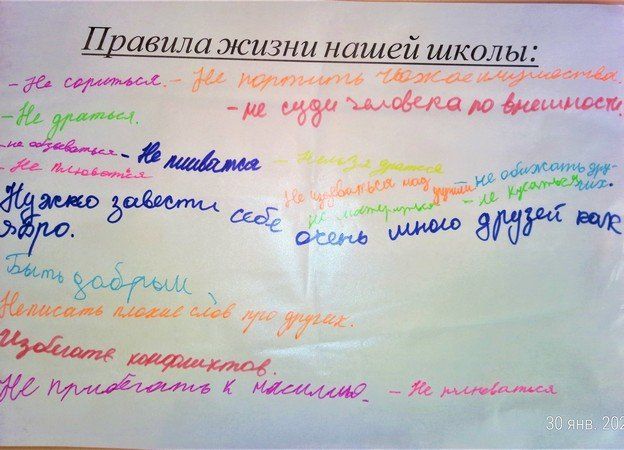 Правила жизни нашей школы:
- Не сориться. - Не портить чужое имущество.
- Не драться. - не суди человека по внешности.
- не обзываться - Не пливатся - Нельзя дратся
- Не плюватся Не издеваться над другими - не обижать дру-
гих.
не материться - не кусаться
Нужно завести себе очень много друзей как
ядро.
Быть добрым
Неписать плохие слов про других.
Избегать конфликтов.
Не прибегать к насилию. - Не плюваться
30 янв. 202